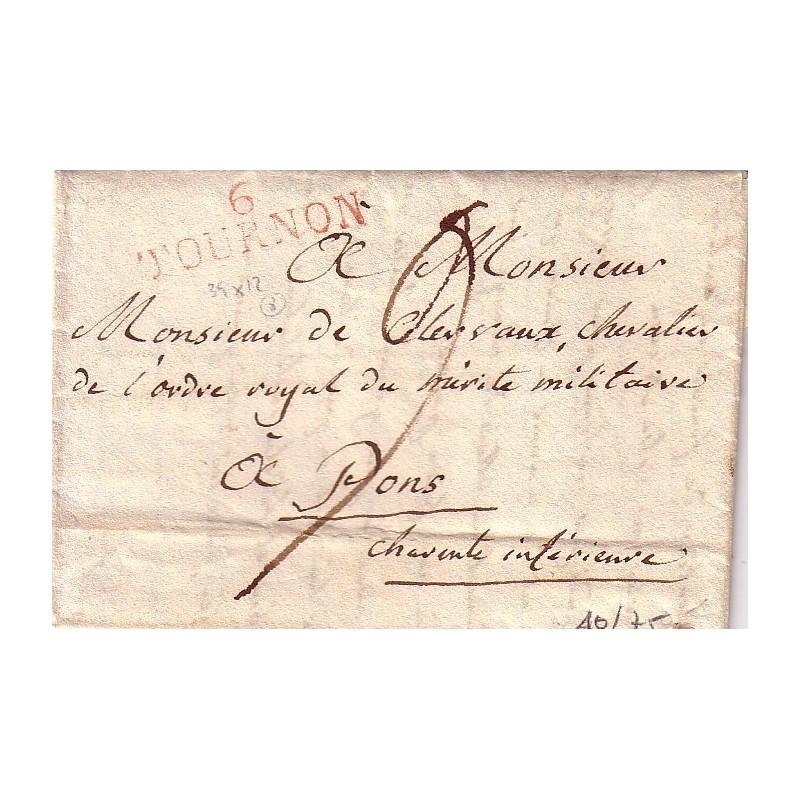 6
TOURNON
39 x 12
à Monsieur
Monsieur de Clervaux, chevalier
de l'ordre royal du mérite militaire
à Pons
charente inférieure
9
40/75